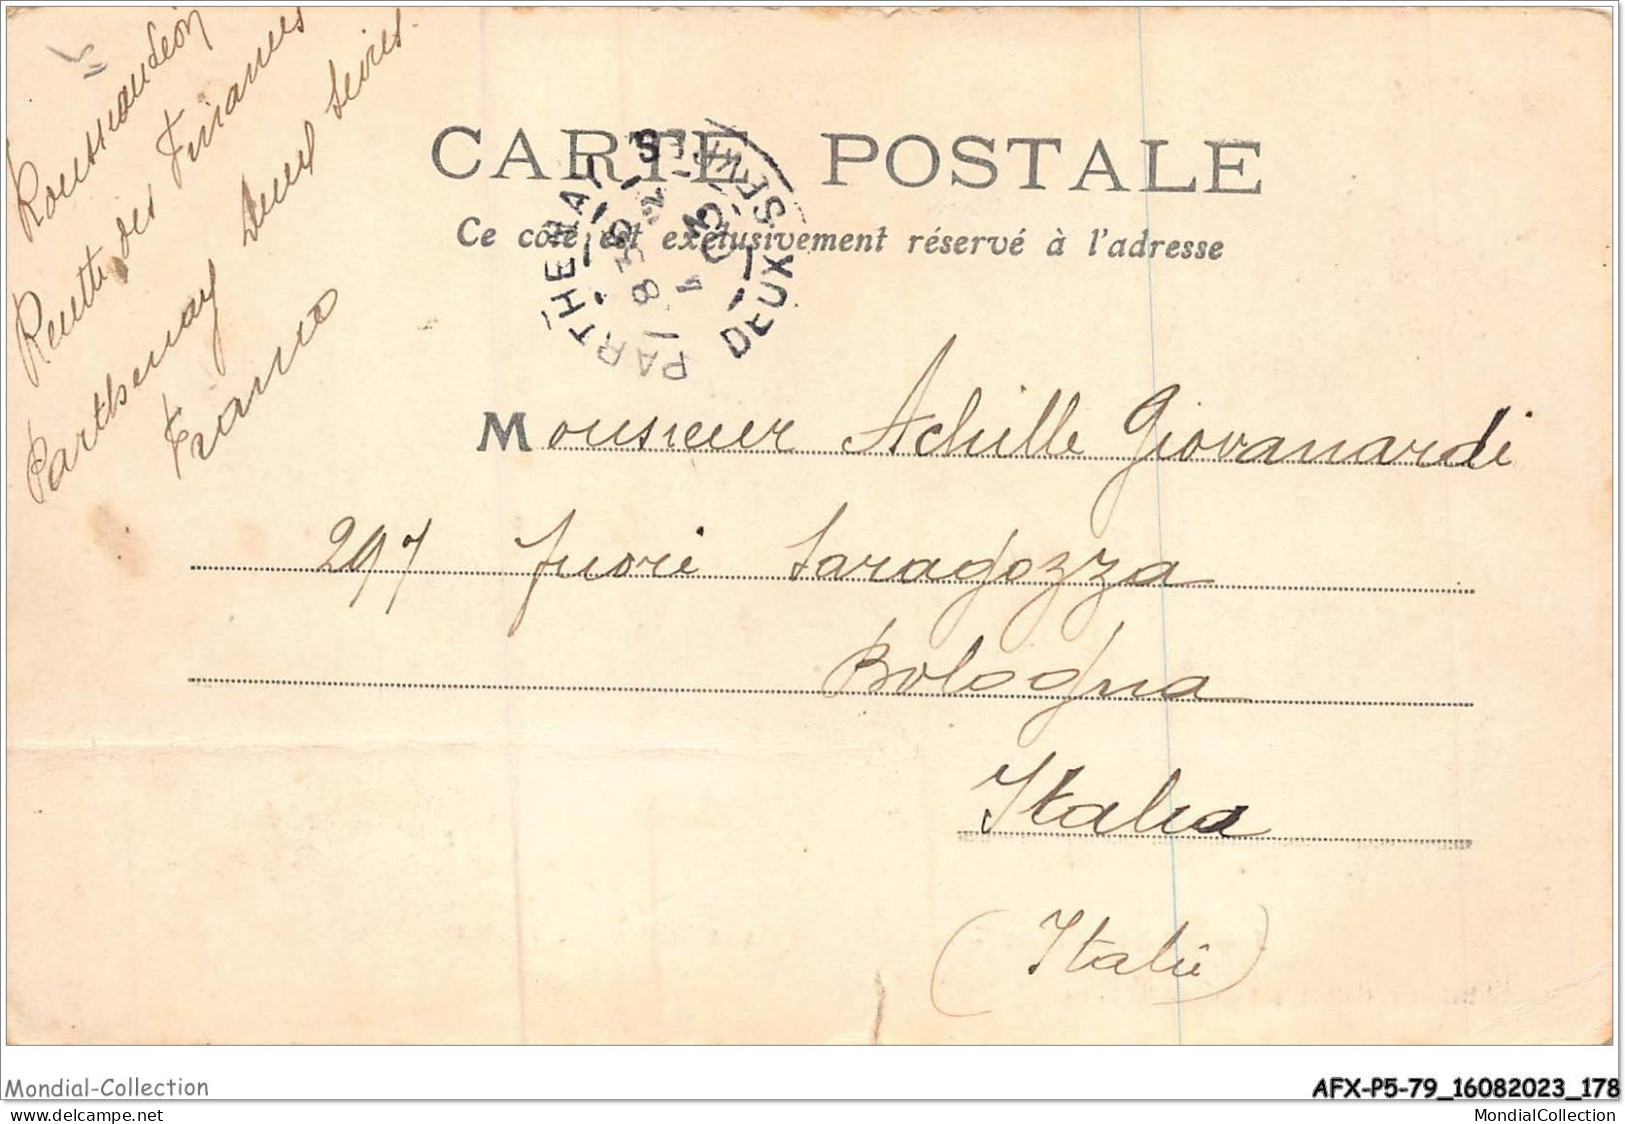 Rousseau Léon
Recette des Finances
Parthenay Deux Sèvres.
France
CARTE POSTALE
Ce côté est exclusivement réservé à l'adresse
PARTHENAY
DEUX-SEVRES
8 35
Monsieur Achille Giovanardi
297 fuori Saragozza
Bologna
Italia
(Italie)
Mondial-Collection
AFX-P5-79_16082023_178
MondialCollection.com/usr/details.txt
MondialCollection